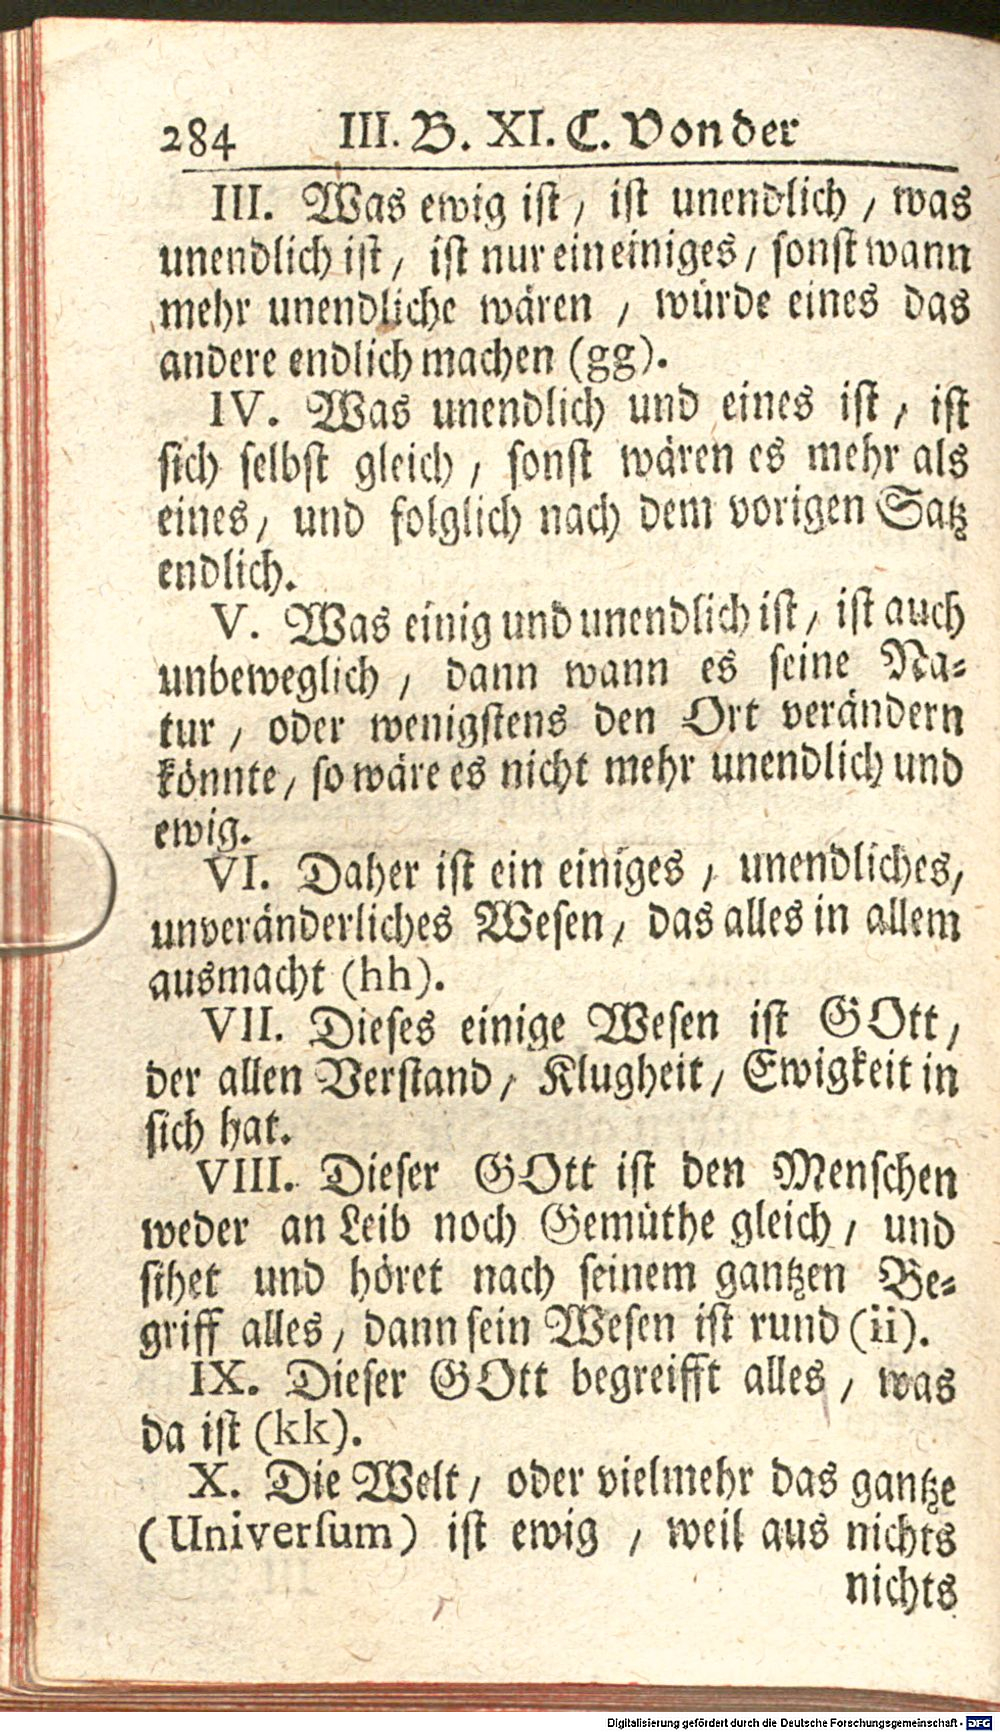 284 III. B. XI. C. Von der
III. Was ewig ist, ist unendlich, was
unendlich ist, ist nur ein einiges, sonst wann
mehr unendliche wären, würde eines das
andere endlich machen (gg).
IV. Was unendlich und eines ist, ist
sich selbst gleich, sonst wären es mehr als
eines, und folglich nach dem vorigen Satz
endlich.
V. Was einig und unendlich ist, ist auch
unbeweglich, dann wann es seine Na-
tur, oder wenigstens den Ort verändern
könnte, so wäre es nicht mehr unendlich und
ewig.
VI. Daher ist ein einiges, unendliches,
unveränderliches Wesen, das alles in allem
ausmacht (hh).
VII. Dieses einige Wesen ist GOtt,
der allen Verstand, Klugheit, Ewigkeit in
sich hat.
VIII. Dieser GOtt ist den Menschen
weder an Leib noch Gemüthe gleich, und
sihet und höret nach seinem gantzen Be-
griff alles, dann sein Wesen ist rund (ii).
IX. Dieser GOtt begreifft alles, was
da ist (kk).
X. Die Welt, oder vielmehr das gantze
(Universum) ist ewig, weil aus nichts
nichts
Digitalisierung gefördert durch die Deutsche Forschungsgemeinschaft - DFG